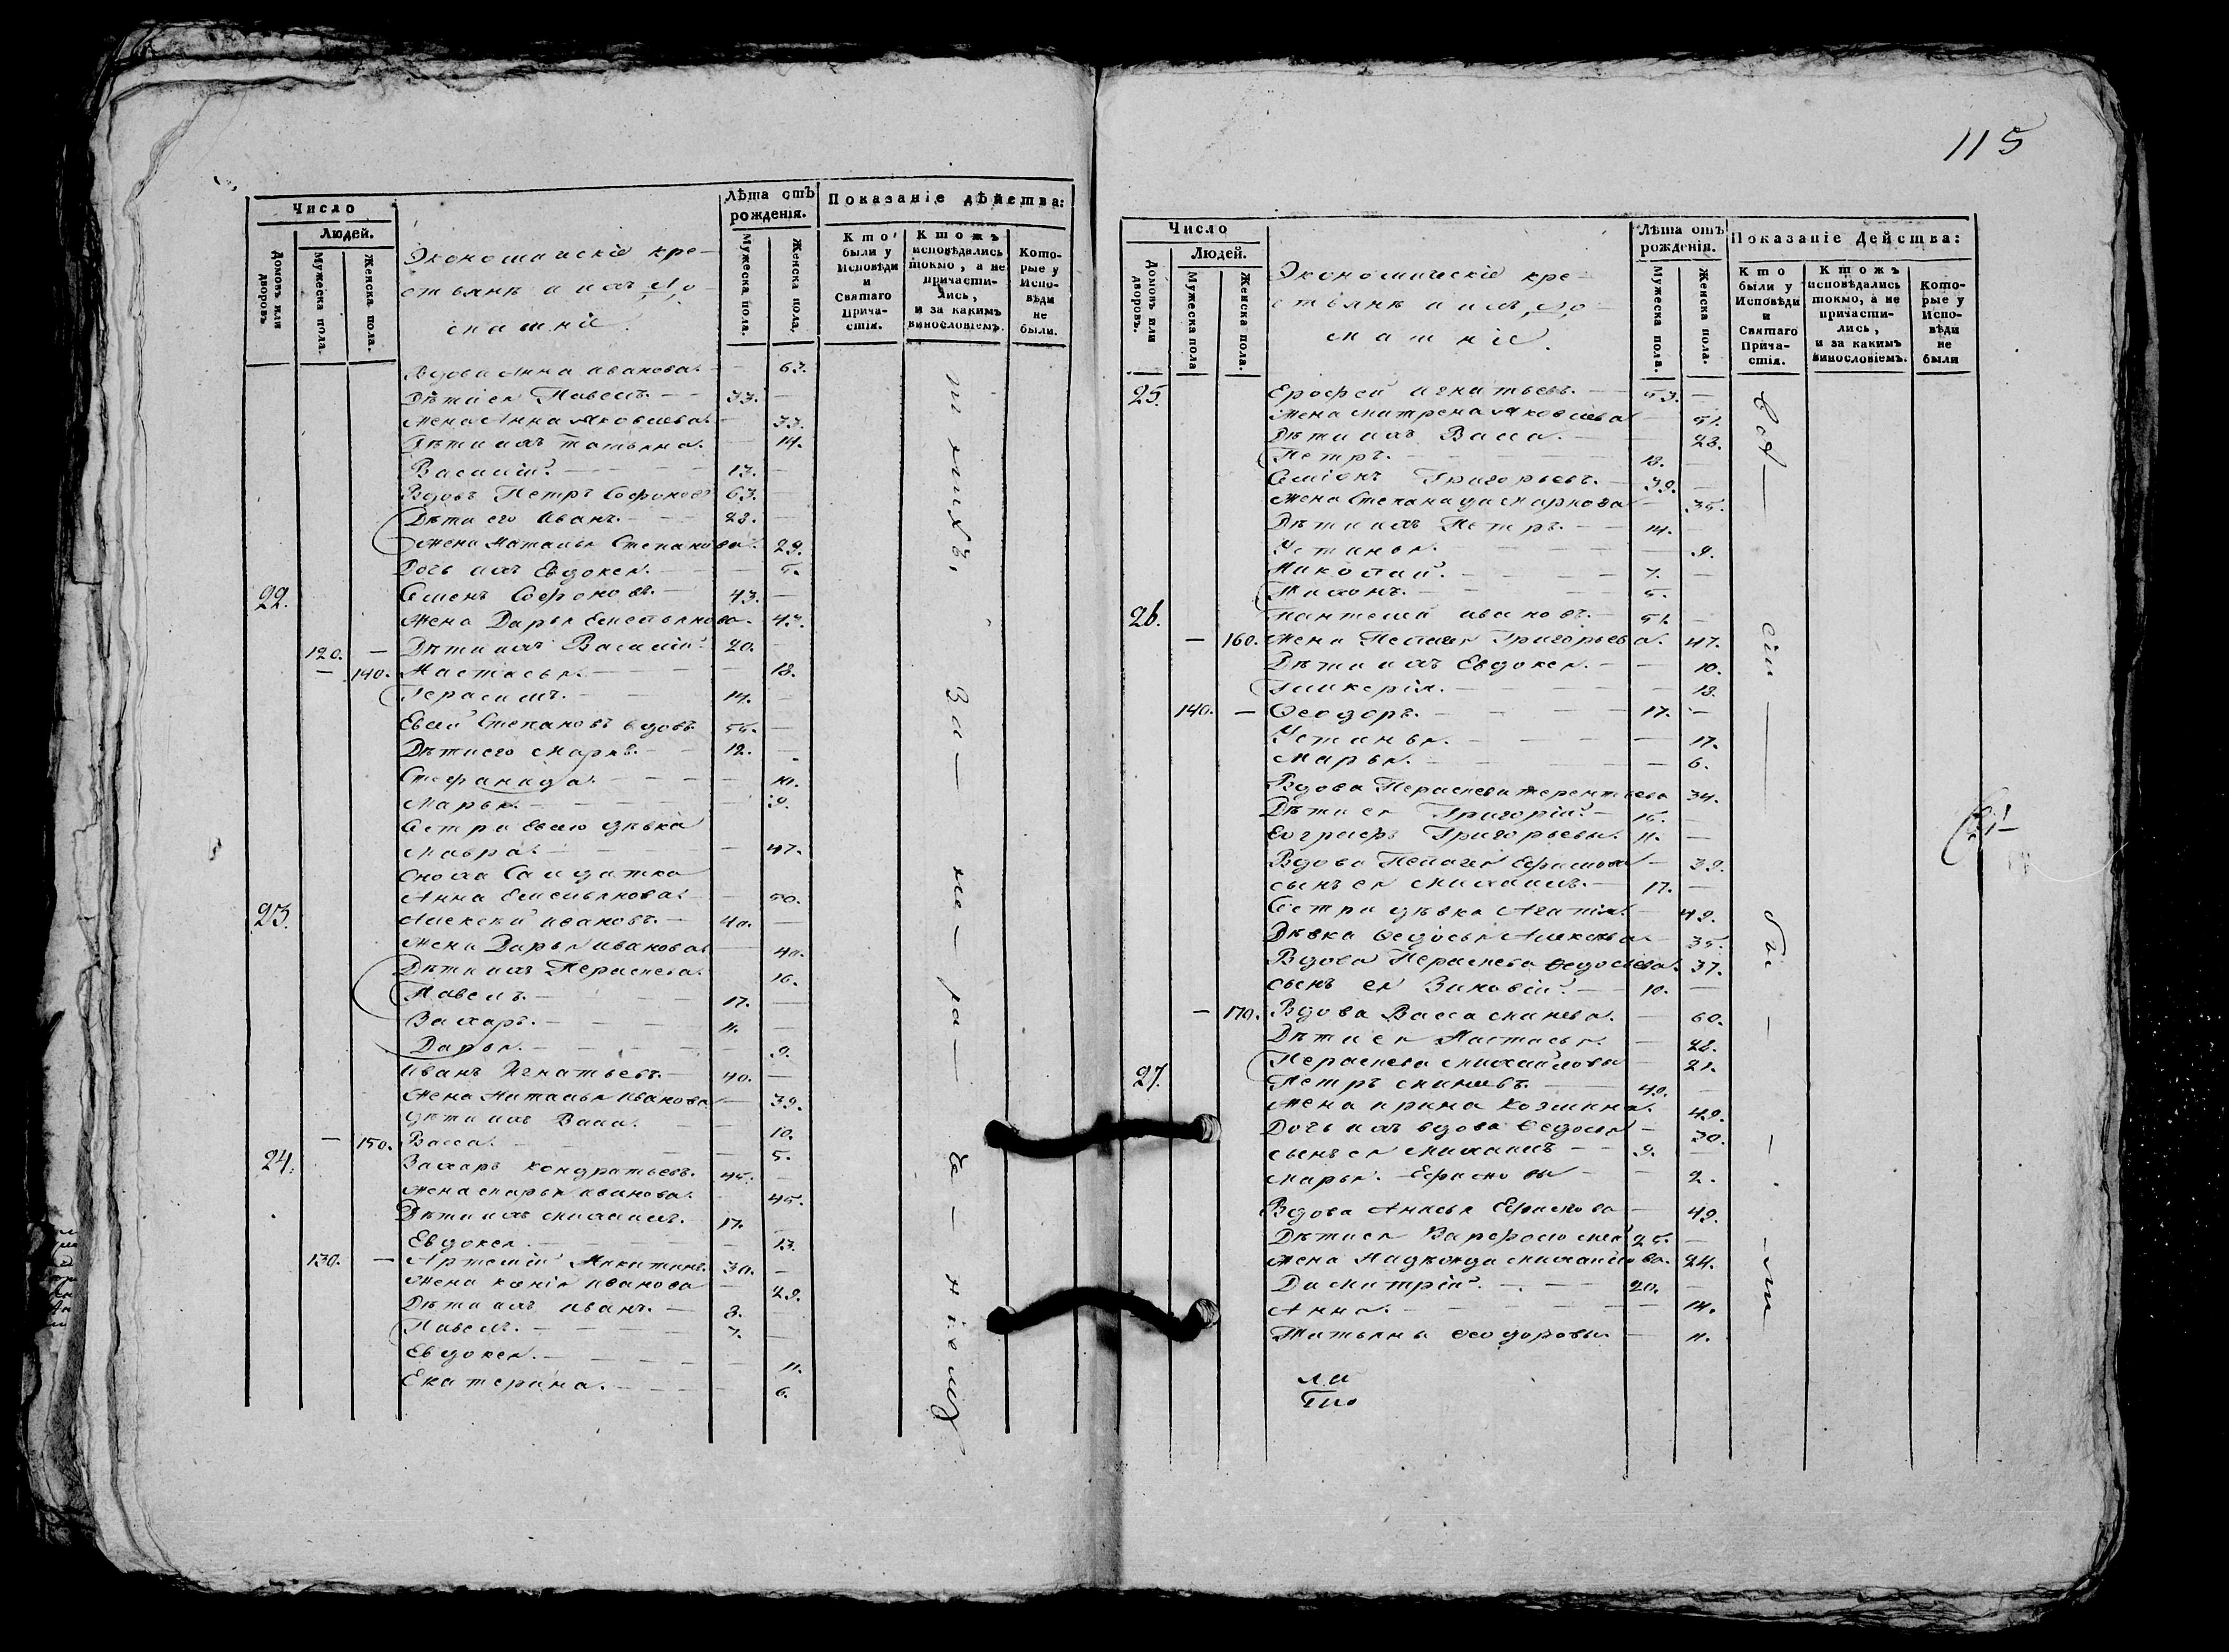 115
Число
Людей.
Домовъ или дворовъ
Мужеска пола.
Женска пола.
Экономическіе кре-
стьянѣ и ихъ до-
машніе.
Лѣта отъ рожденія.
Мужеска пола.
Женска пола.
Показаніе дѣйства:
Кто были у Исповѣди и Святаго Причастія.
Ктожъ исповѣдались токмо, а не причастились, и за какимъ винословіемъ.
Которые у Исповѣди не были.
Вдова Анна Иванова. — 63.
Дѣти ея Павелъ. 33. —
Жена Анна Яковлева. — 33.
Дѣти ихъ Татьяна. — 14.
Василій. 13. —
Вдовъ Петръ Софоновъ 63. —
Дѣти его Иванъ. 28. —
Жена Наталья Степанова. 29.
Дочь ихъ Евдокея. — 5.
22. Семенъ Софоновъ. 43. —
Жена Дарья Емельянова. 43.
120. — Дѣти ихъ Василій 20. —
— 140. Настасья. — 18.
Герасимъ. 14. —
Евсей Степановъ вдовъ 55. —
Дѣти его Марко. 12. —
Стефанида. —
Марья. — 9.
Сестра Евсею дѣвка
Мавра. — 47.
Сноха Салдатка
Анна Емельянова. — 50.
23. Алексѣй Ивановъ. 40. —
Жена Дарья Иванова. — 40.
Дѣти ихъ Пераскева. 16.
Павелъ. 17. —
Захаръ. 11. —
Дарья. — 9.
Иванъ Игнатьевъ. 40. —
Жена Наталья Иванова — 39.
Дѣти ихъ Васа. — 10.
— 150. Васса. — 5.
24. Захаръ Кондратьевъ. 45. —
Жена Марья Иванова. 45.
Дѣти ихъ Михаилъ. 17. —
Евдокея. — 13.
130. — Артемій Никитинъ. 30. —
Жена Ксенія Иванова — 29.
Дѣти ихъ Иванъ. 8. —
Павелъ. 7. —
Евдокея. — 11.
Екатерина. — 6.
За — не — ра — де — ніемъ
Число
Людей.
Домовъ или дворовъ.
Мужеска пола
Женска пола.
Экономическіе кре-
стьянѣ и ихъ до-
машніе.
Лѣта отъ рожденія.
Мужеска пола.
Женска пола.
Показаніе Дейстьва:
Кто были у Исповѣди и Святаго Причастія.
Ктожъ исповѣдались токмо, а не причастились, и за какимъ винословіемъ.
Которые у Исповѣди не были
25. Ерофей Игнатьевъ. 53. —
Жена Матрена Яковлева 51.
Дѣти ихъ Васса. — 23.
Петръ. 18. —
Семіонъ Григорьевъ. 39. —
Жена Степанида Маркова — 35.
Дѣти ихъ Петръ. 14. —
Устинья. — 9.
Николай. 7. —
Тихонъ. 5. —
26. Пантелей Ивановъ. 51. —
— 160. Жена Пелагея Григорьева. 47.
Дѣти ихъ Евдокея. — 10.
Гликерія. — 18.
140. — Ѳеодоръ. 17. —
Устинья. — 17.
Марья. — 6.
Вдова Пераскева Терентьева 34.
Дѣти ея Григорій 15. —
Евграфъ Григорьевы. 11. —
Вдова Пелагея Ефимова — 39.
сынъ ея Михаилъ. 17. —
Сестра дѣвка Агапія. — 49.
Дѣвка Ѳедосья Алексѣева. 35.
Вдова Пераскева Ѳедосеева. 37.
сынъ ея Зиновій. 10. —
— 170. Вдова Васса — 60.
Дѣти ея Настасья. — 28.
Пераскева Михайловы — 21.
27. Петръ 49. —
Жена Ирина Козмина. 49.
Дочь ихъ вдова Ѳедосья — 30.
сынъ ея Михаилъ — 9. —
Марья. — 2.
Вдова — 49.
Дѣти ея Варфоломей 25. —
Жена Надежда Михайлова. 24.
Димитрій. 20. —
Анна. — 14.
Татьяна Ѳеодоровы — 11.
Всѣ — сіи — бы — ли